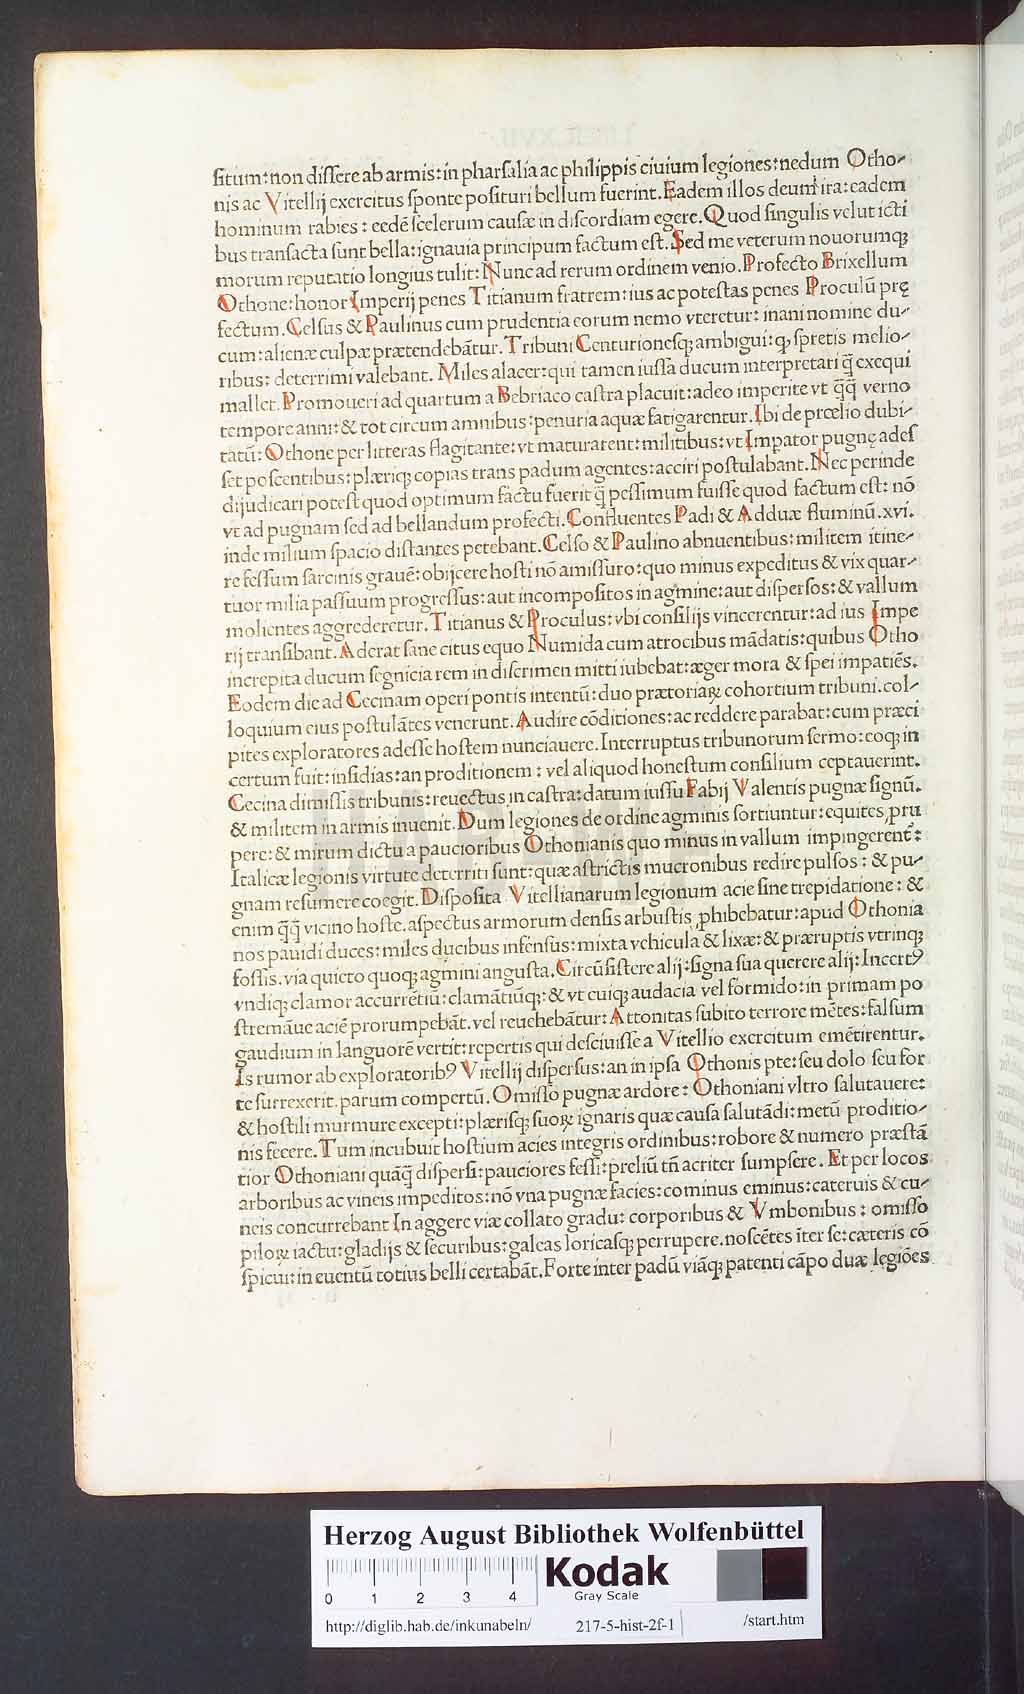 ſitum: non diſſere ab armis: in pharſalia ac philippis ciuium legiones: nedum Otho-
nis ac Vitellij exercitus ſponte poſituri bellum fuerint. Eadem illos deum ira: eadem
hominum rabies: eedē ſcelerum cauſæ in diſcordiam egere. Quod ſingulis velut icti
bus tranſacta ſunt bella: ignauia principum factum eſt. Sed me veterum nouorumqꝫ
morum reputatio longius tulit: Nunc ad rerum ordinem venio. Profecto Brixellum
Othone: honor Imperij penes Titianum fratrem: ius ac poteſtas penes Proculū prę
fectum. Celſus & Paulinus cum prudentia eorum nemo vteretur: inani nomine du-
cum: alienæ culpæ prætendebātur. Tribuni Centurioneſqꝫ ambigui: ꝙ ſpretis melio-
ribus: deterrimi valebant. Miles alacer: qui tamen iuſſa ducum interpretari q̄̄ exequi
mallet. Promoueri ad quartum a Bebriaco caſtra placuit: adeo imperite vt q̄q̄ verno
tempore anni: & tot circum amnibus: penuria aquæ fatigarentur. Ibi de prœlio dubi-
tatū: Othone per litteras flagitante: vt maturarent: militibus: vt Impator pugnę adeſ
ſet poſcentibus: plæriqꝫ copias trans padum agentes: acciri poſtulabant. Nec perinde
dijudicari poteſt quod optimum factu fuerit q̄ peſſimum fuiſſe quod factum eſt: nō
vt ad pugnam ſed ad bellandum profecti. Confluentes Padi & Adduæ fluminū. xvi.
inde milium ſpacio diſtantes petebant. Celſo & Paulino abnuentibus: militem itine-
re feſſum ſarcinis grauē: obijcere hoſti nō amiſſuro: quo minus expeditus & vix quar-
tuor milia paſſuum progreſſus: aut incompoſitos in agmine: aut diſperſos: & vallum
molientes aggrederetur. Titianus & Proculus: vbi conſilijs vincerentur: ad ius Impe
rij tranſibant. Aderat ſane citus equo Numida cum atrocibus mādatis: quibus Otho
increpita ducum ſegnicia rem in diſcrimen mitti iubebat: æger mora & ſpei impatiēs.
Eodem die ad Cecinam operi pontis intentū: duo prætoriaꝝ cohortium tribuni. col-
loquium eius poſtulātes venerunt. Audire cōditiones: ac reddere parabat: cum præci
pites exploratores adeſſe hoſtem nunciauere. Interruptus tribunorum ſermo: eoqꝫ in
certum fuit: inſidias: an proditionem: vel aliquod honeſtum conſilium ceptauerint.
Cecina dimiſſis tribunis: reuectus in caſtra: datum iuſſu Fabij Valentis pugnæ ſignū.
& militem in armis inuenit. Dum legiones de ordine agminis ſortiuntur: equites, pru
pere: & mirum dictu a paucioribus Othonianis quo minus in vallum impingerent:
Italicæ legionis virtute deterriti ſunt: quæ aſtrictis mucronibus redire pulſos: & pu-
gnam reſumere coegit. Diſpoſita Vitellianarum legionum acie ſine trepidatione: &
enim q̄q̄ vicino hoſte. aſpectus armorum denſis arbuſtis ꝓhibebatur: apud Othonia
nos pauidi duces: miles ducibus infenſus: mixta vehicula & lixæ: & præruptis vtrinqꝫ
foſſis. via quieto quoqꝫ agmini anguſta. Circūſiſtere alij: ſigna ſua querere alij: Incertꝰ
vndiqꝫ clamor accurrētiū: clamātiūqꝫ: & vt cuiqꝫ audacia vel formido: in primam po
ſtremāue aciē prorumpebāt. vel reuehebātur: Attonitas ſubito terrore mētes: falſum
gaudium in languorē vertit: repertis qui deſciuiſſe a Vitellio exercitum emētirentur.
Is rumor ab exploratoribꝰ Vitellij diſperſus: an in ipſa Othonis pte: ſeu dolo ſeu for
te ſurrexerit. parum compertū. Omiſſo pugnæ ardore: Othoniani vltro ſalutauere:
& hoſtili murmure excepti: plæriſqꝫ ſuoꝝ ignaris quæ cauſa ſalutādi: metū proditio-
nis fecere. Tum incubuit hoſtium acies integris ordinibus: robore & numero præſtā
tior Othoniani quāq̄ diſperſi: pauciores feſſi: preliū tn̄ acriter ſumpſere. Et per locos
arboribus ac vineis impeditos: nō vna pugnæ facies: cominus eminus: cateruis & cu-
neis concurrebant In aggere viæ collato gradu: corporibus & Vmbonibus: omiſſo
piloꝝ iactu: gladijs & ſecuribus: galeas loricaſqꝫ perrupere. noſcētes īter ſe: cæteris cō
ſpicui: in euentū totius belli certabāt. Forte inter padū viāqꝫ patenti cāpo duæ legiōes
HAB-WF
Herzog August Bibliothek Wolfenbüttel
0 1 2 3 4
Kodak
Gray Scale
http://diglib.hab.de/inkunabeln/ 217-5-hist-2f-1 /start.htm